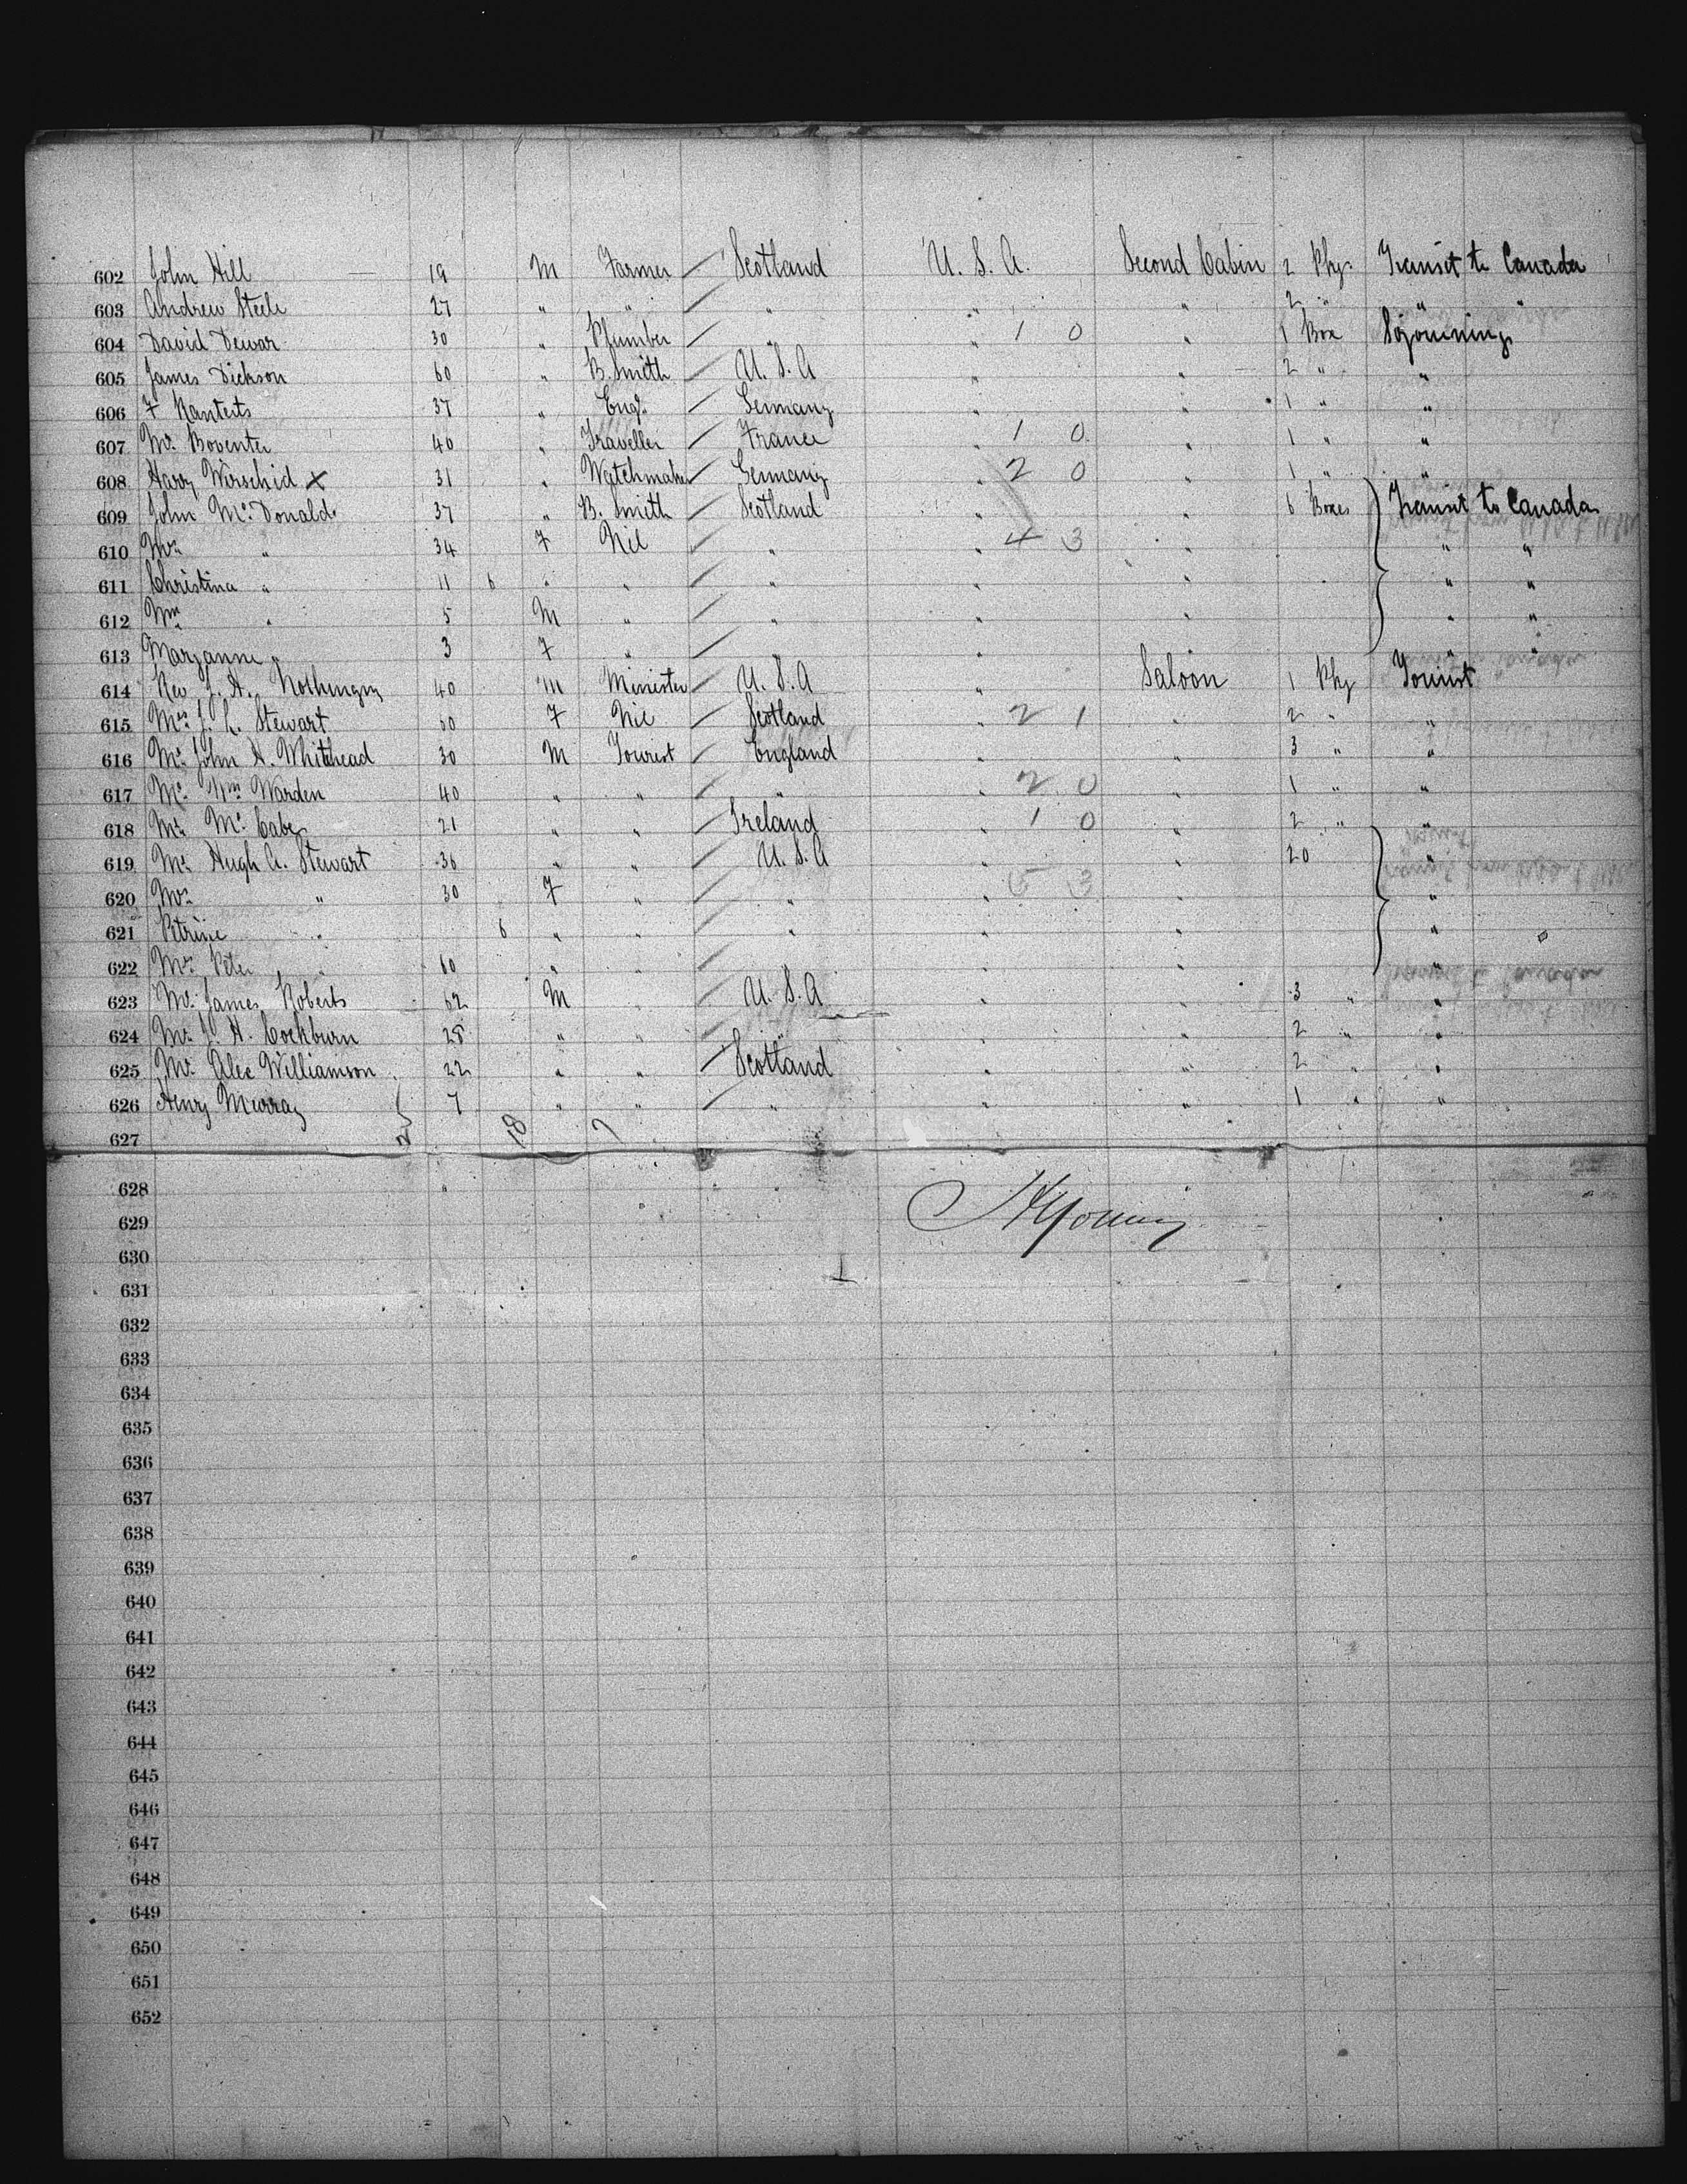 602 John Hill 19 M Farmer Scotland U. S. A. Second Cabin 2 Pkg. Transit to Canada
603 Andrew Steele 27 " " " " " 2 " " "
604 David Dewar 30 " Plumber " " 1 0 " 1 Box Sojourning
605 James Dickson 60 " B. Smith U. S. A " " 2 " "
606 F 37 " Engr. Germany " " 1 " "
607 Mr. Boventer 40 " Traveller France " 1 0 " 1 " "
608 Harry Wirschid X 31 " Watchmaker Germany " 2 0 " 1 " "
609 John Mc. Donald 37 " B. Smith Scotland " " 6 Boxes Transit to Canada
610 Mrs " 34 F Nil " " 4 3 " " "
611 Christina " 11 6 " " " " " " "
612 Wm " 5 M " " " " " "
613 Maryanne " 3 F " " " " " "
614 Rev 40 M Minister U. S. A " Saloon 1 Pkg Tourist
615 Mrs Stewart F Nil Scotland " 2 1 " 2 " "
616 Mr John H. Whitehead 30 M Tourist England " " 3 " "
617 Mr. Wm Warden 40 " " " " 2 0 " 1 " "
618 Mr. Mc. Cabe 21 " " Ireland " 1 0 " 2 " "
619 Mr Hugh A. Stewart 36 " " U. S. A " " 20 "
620 Mrs " 30 F " " " 5 3 " "
621 Petrine " 6 " " " " " "
622 Mrs Peter " 60 " " " " "
623 Mr. James Roberts 62 M " U. S. A " " 3 " "
624 Mr. J. H. Cockburn 28 " " " " " 2 " "
625 Mr. Alec Williamson 22 " " Scotland " " 2 " "
626 Henry Murray 7 " " " " " 1 " "
627 18 7
628
629
630
631
632
633
634
635
636
637
638
639
640
641
642
643
644
645
646
647
648
649
650
651
652